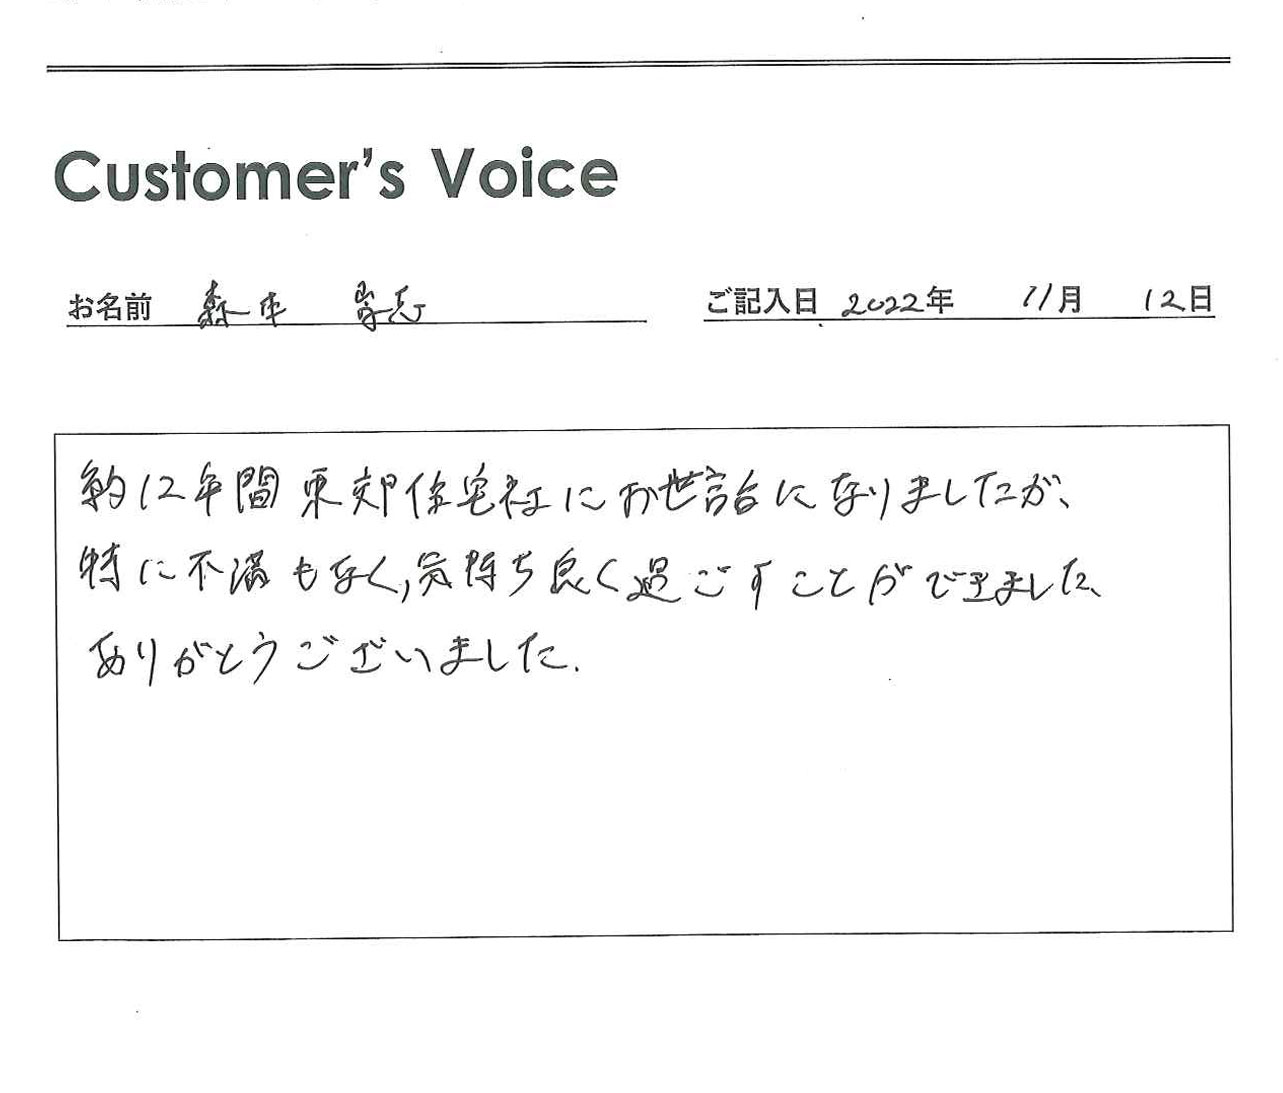 Customer's Voice
お名前 森本 崇志
ご記入日 2022年 11月 12日
約12年間東郊住宅社にお世話になりましたが、
特に不満もなく,気持ち良く過ごすことができました、
ありがとうございました.